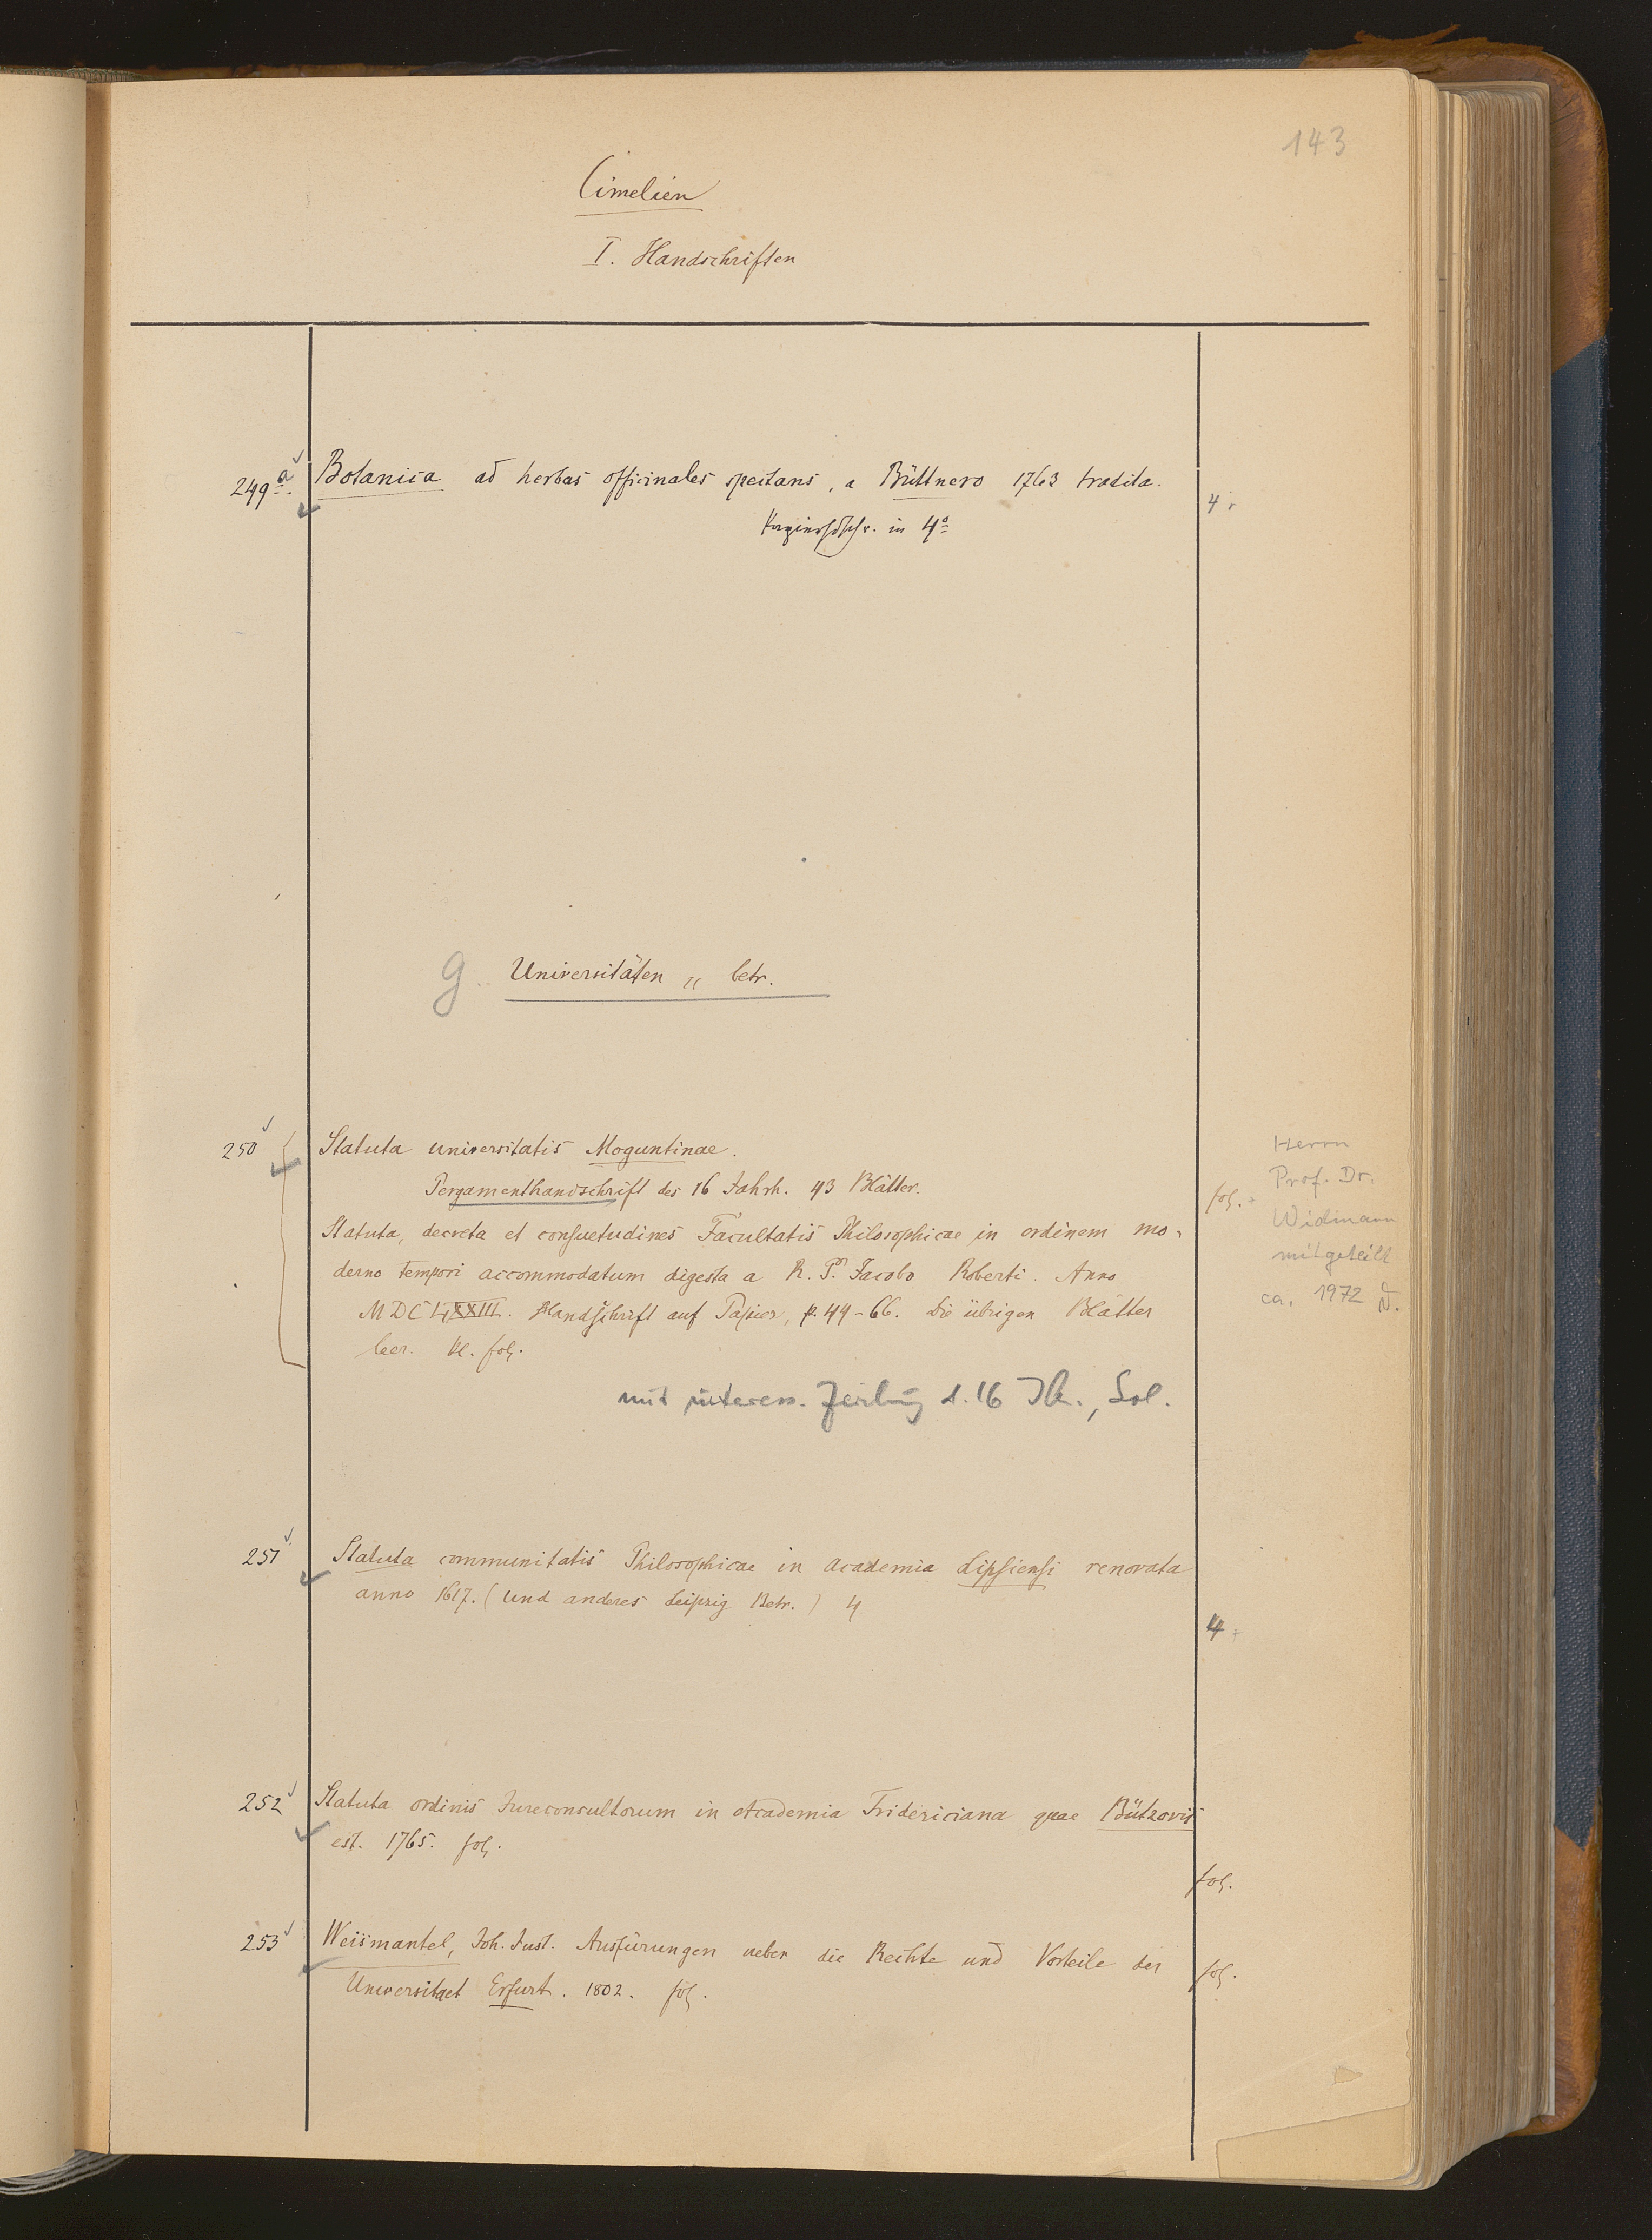 143
Cimelien
I. Handschriften
249a. Botanica ad herbas officinales spectans, a Büttnero 1763 tradita. 4
Papierhdschr. in 4o
g. Universitäten betr.
250 Statuta universitatis Moguntinae.
Pergamenthandschrift des 16 Jahrh. 43 Blätter.
fol.
Statuta, decreta et consuetudines Facultatis Philosophicae in ordinem mo-
derno tempori accommodatum digesta a R. P. Jacobo Roberti. Anno
MDCLXXIII. Handschrift auf Papier, p. 49-66. Die übrigen Blätter
leer. kl. fol.
Herrn
Prof. Dr.
Widmann
mitgeteilt
ca. 1972
mit d. 16 Jh.,
251 Statuta communitatis Philosophicae in academia Lipsiensi renovata
anno 1617. (und anderes Leipzig Betr.) 4
4
252 Statuta ordinis Jureconsultorum in Academia Fridericiana quae Bützovii
est. 1765. fol.
fol.
253 Weismantel, Joh. Just. Ausfürungen ueber die Rechte und Vorteile der
Universitaet Erfurt. 1802. fol.
fol.